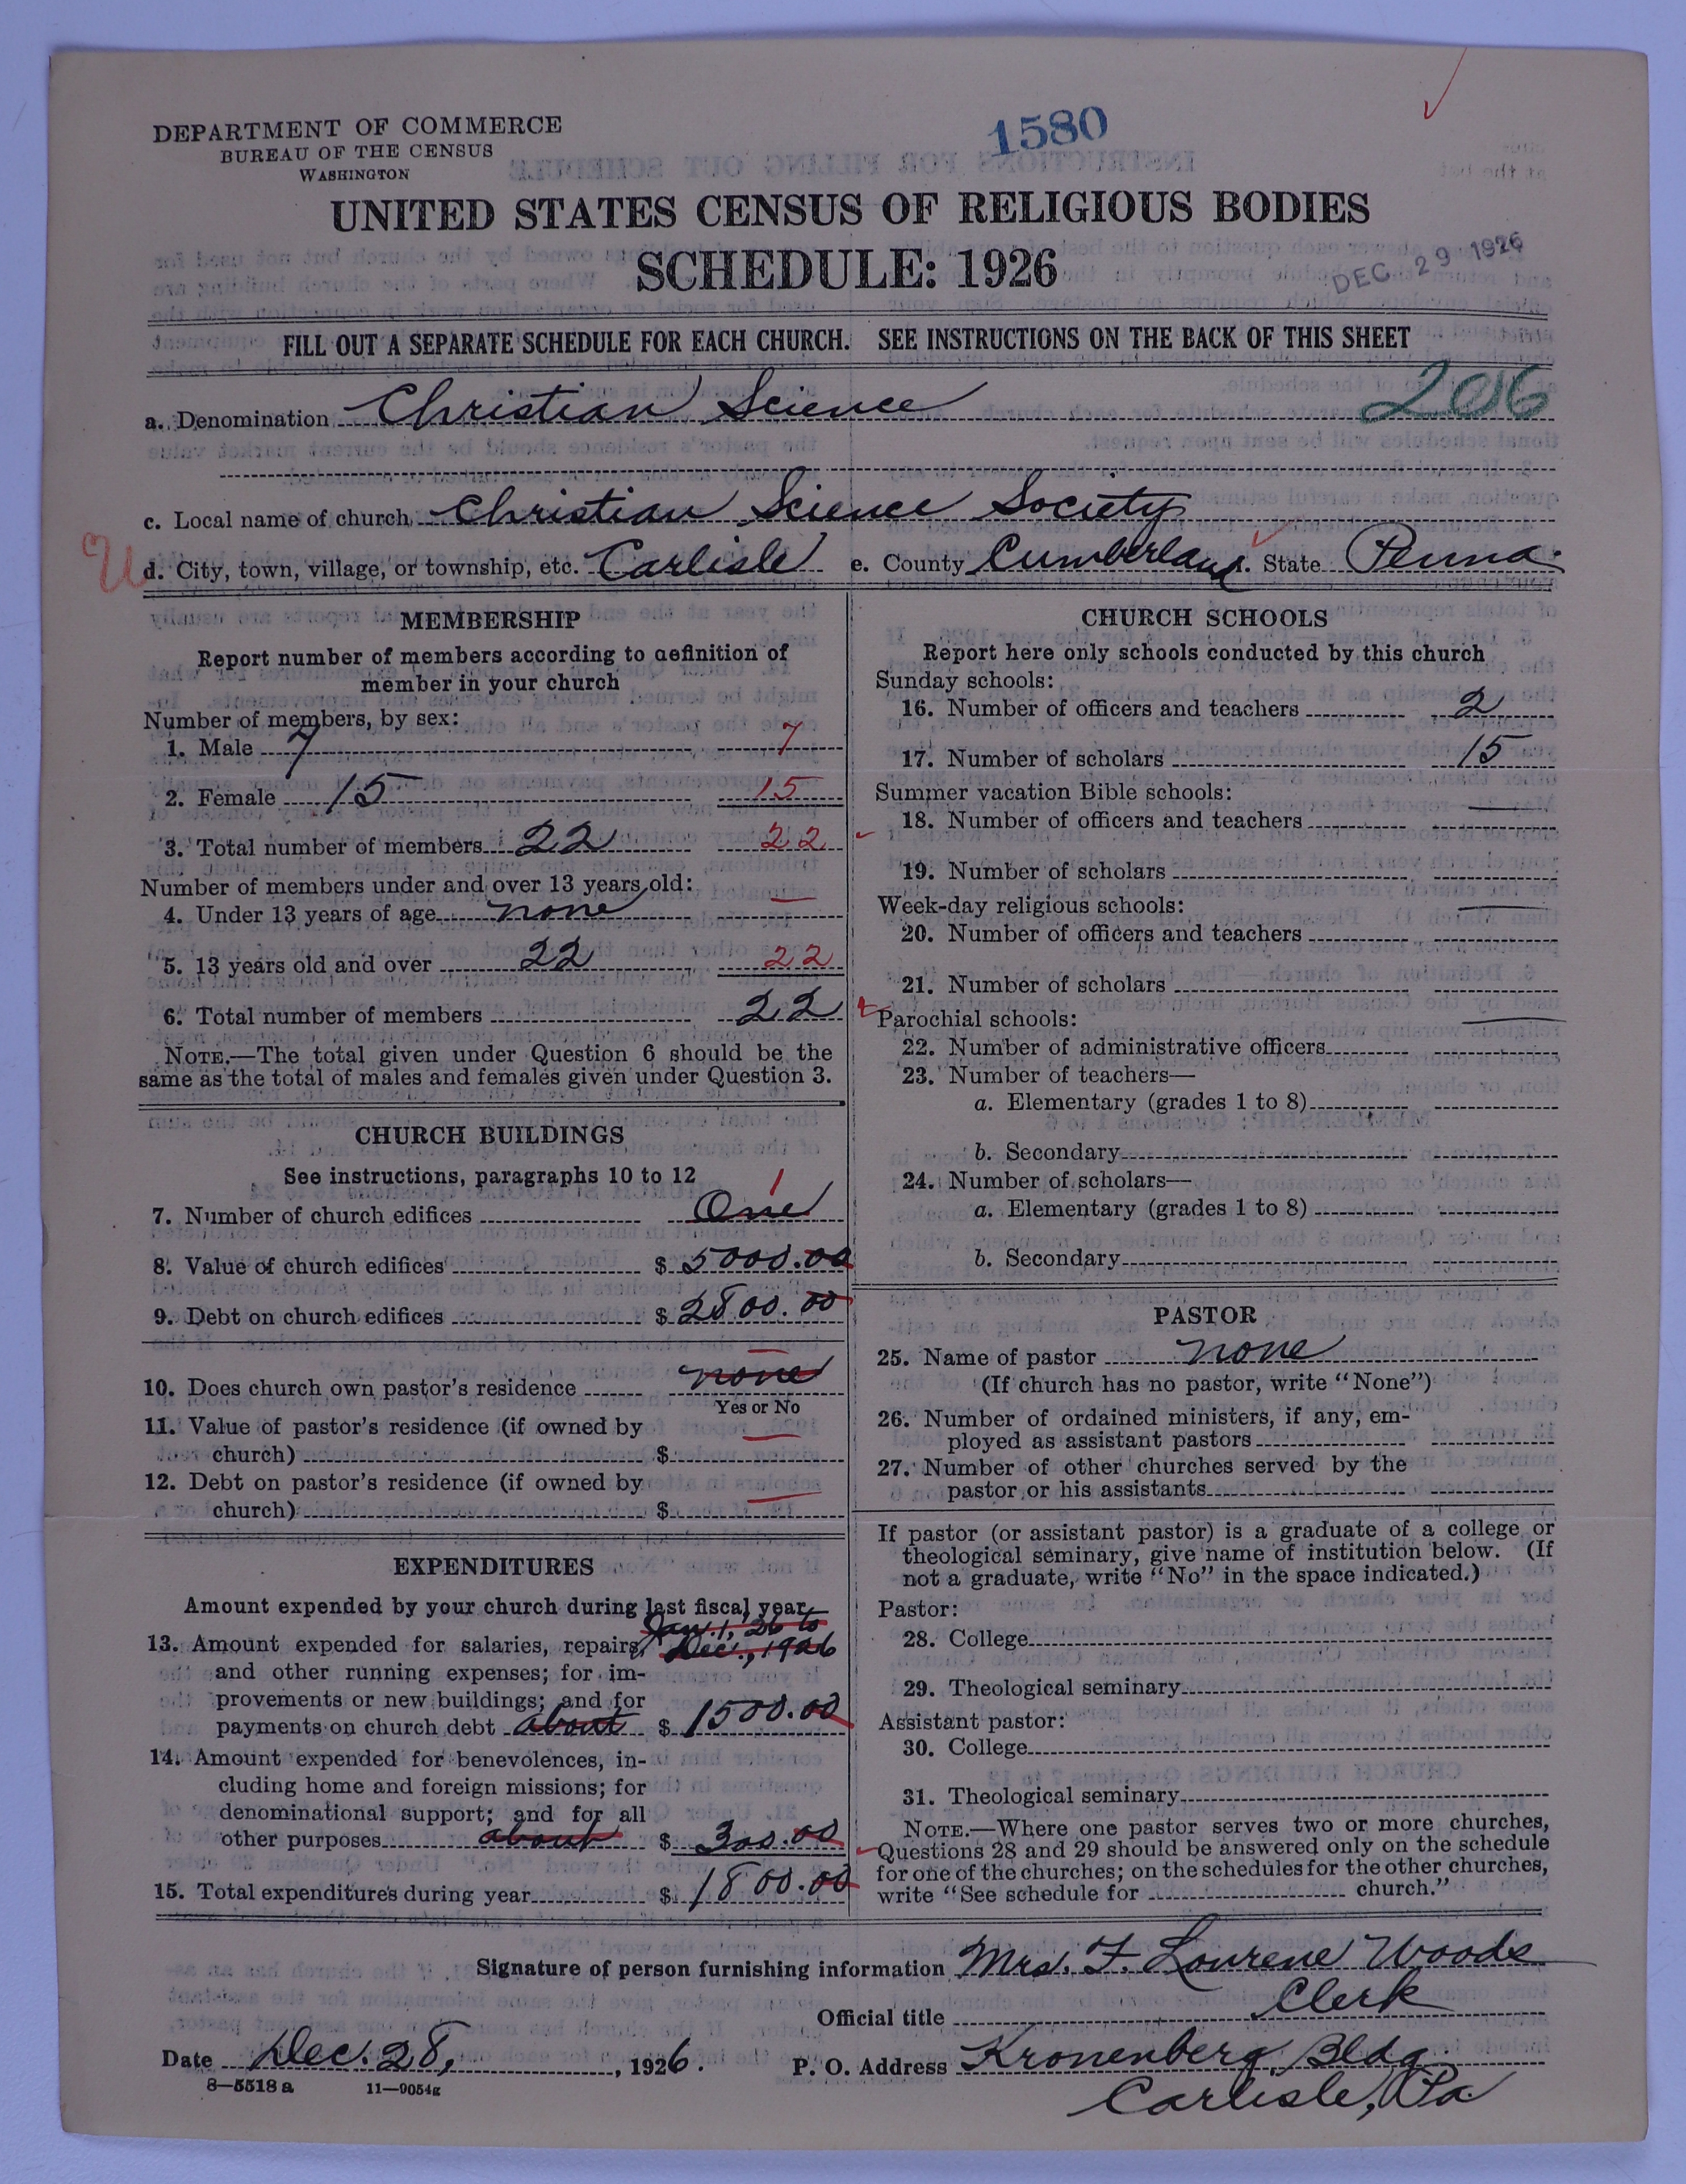 1580
DEPARTMENT OF COMMERCE
BUREAU OF THE CENSUS
WASHINGTON
UNITED STATES CENSUS OF RELIGIOUS BODIES
SCHEDULE: 1926
DEC 29 1926
FILL OUT A SEPARATE SCHEDULE FOR EACH CHURCH. SEE INSTRUCTIONS ON THE BACK OF THIS SHEET
a. Denomination Christian Science 206
c. Local name of church Christian Science Society
U d. City, town, village, or township, etc. Carlisle e. County Cumberland. State Penna.
MEMBERSHIP
Report number of members according to definition of
member in your church
Number of members, by sex:
1. Male 7 7
2. Female 15 15
3. Total number of members 22 22
Number of members under and over 13 years old:
4. Under 13 years of age none —
5. 13 years old and over 22 22
6. Total number of members 22
NOTE.—The total given under Question 6 should be the
same as the total of males and females given under Question 3.
CHURCH BUILDINGS
See instructions, paragraphs 10 to 12
7. Number of church edifices One 1
8. Value of church edifices $ 5000.00
9. Debt on church edifices $ 2800.00
10. Does church own pastor's residence none
Yes or No
11. Value of pastor's residence (if owned by
church) $ —
12. Debt on pastor's residence (if owned by
church) $ —
EXPENDITURES
Amount expended by your church during last fiscal year
Jan. 1, 26 to
13. Amount expended for salaries, repairs, Dec., 1926
and other running expenses; for im-
provements or new buildings; and for
payments on church debt about $ 1500.00
14. Amount expended for benevolences, in-
cluding home and foreign missions; for
denominational support; and for all
other purposes about $ 300.00
15. Total expenditures during year $ 1800.00
CHURCH SCHOOLS
Report here only schools conducted by this church
Sunday schools:
16. Number of officers and teachers 2
17. Number of scholars 15
Summer vacation Bible schools:
18. Number of officers and teachers —
19. Number of scholars
Week-day religious schools:
20. Number of officers and teachers —
21. Number of scholars
Parochial schools:
22. Number of administrative officers —
23. Number of teachers—
a. Elementary (grades 1 to 8)
b. Secondary
24. Number of scholars—
a. Elementary (grades 1 to 8)
b. Secondary
PASTOR
25. Name of pastor none
(If church has no pastor, write "None")
26. Number of ordained ministers, if any, em-
ployed as assistant pastors
27. Number of other churches served by the
pastor or his assistants
If pastor (or assistant pastor) is a graduate of a college or
theological seminary, give name of institution below. (If
not a graduate, write "No" in the space indicated.)
Pastor:
28. College
29. Theological seminary
Assistant pastor:
30. College
31. Theological seminary
NOTE.—Where one pastor serves two or more churches,
Questions 28 and 29 should be answered only on the schedule
for one of the churches; on the schedules for the other churches,
write "See schedule for church."
Signature of person furnishing information Mrs. F. Lourene Woods
Official title Clerk
Date Dec. 28, 1926. P. O. Address Kronenberg Bldg.
Carlisle, Pa
8—5518 a 11—9054g